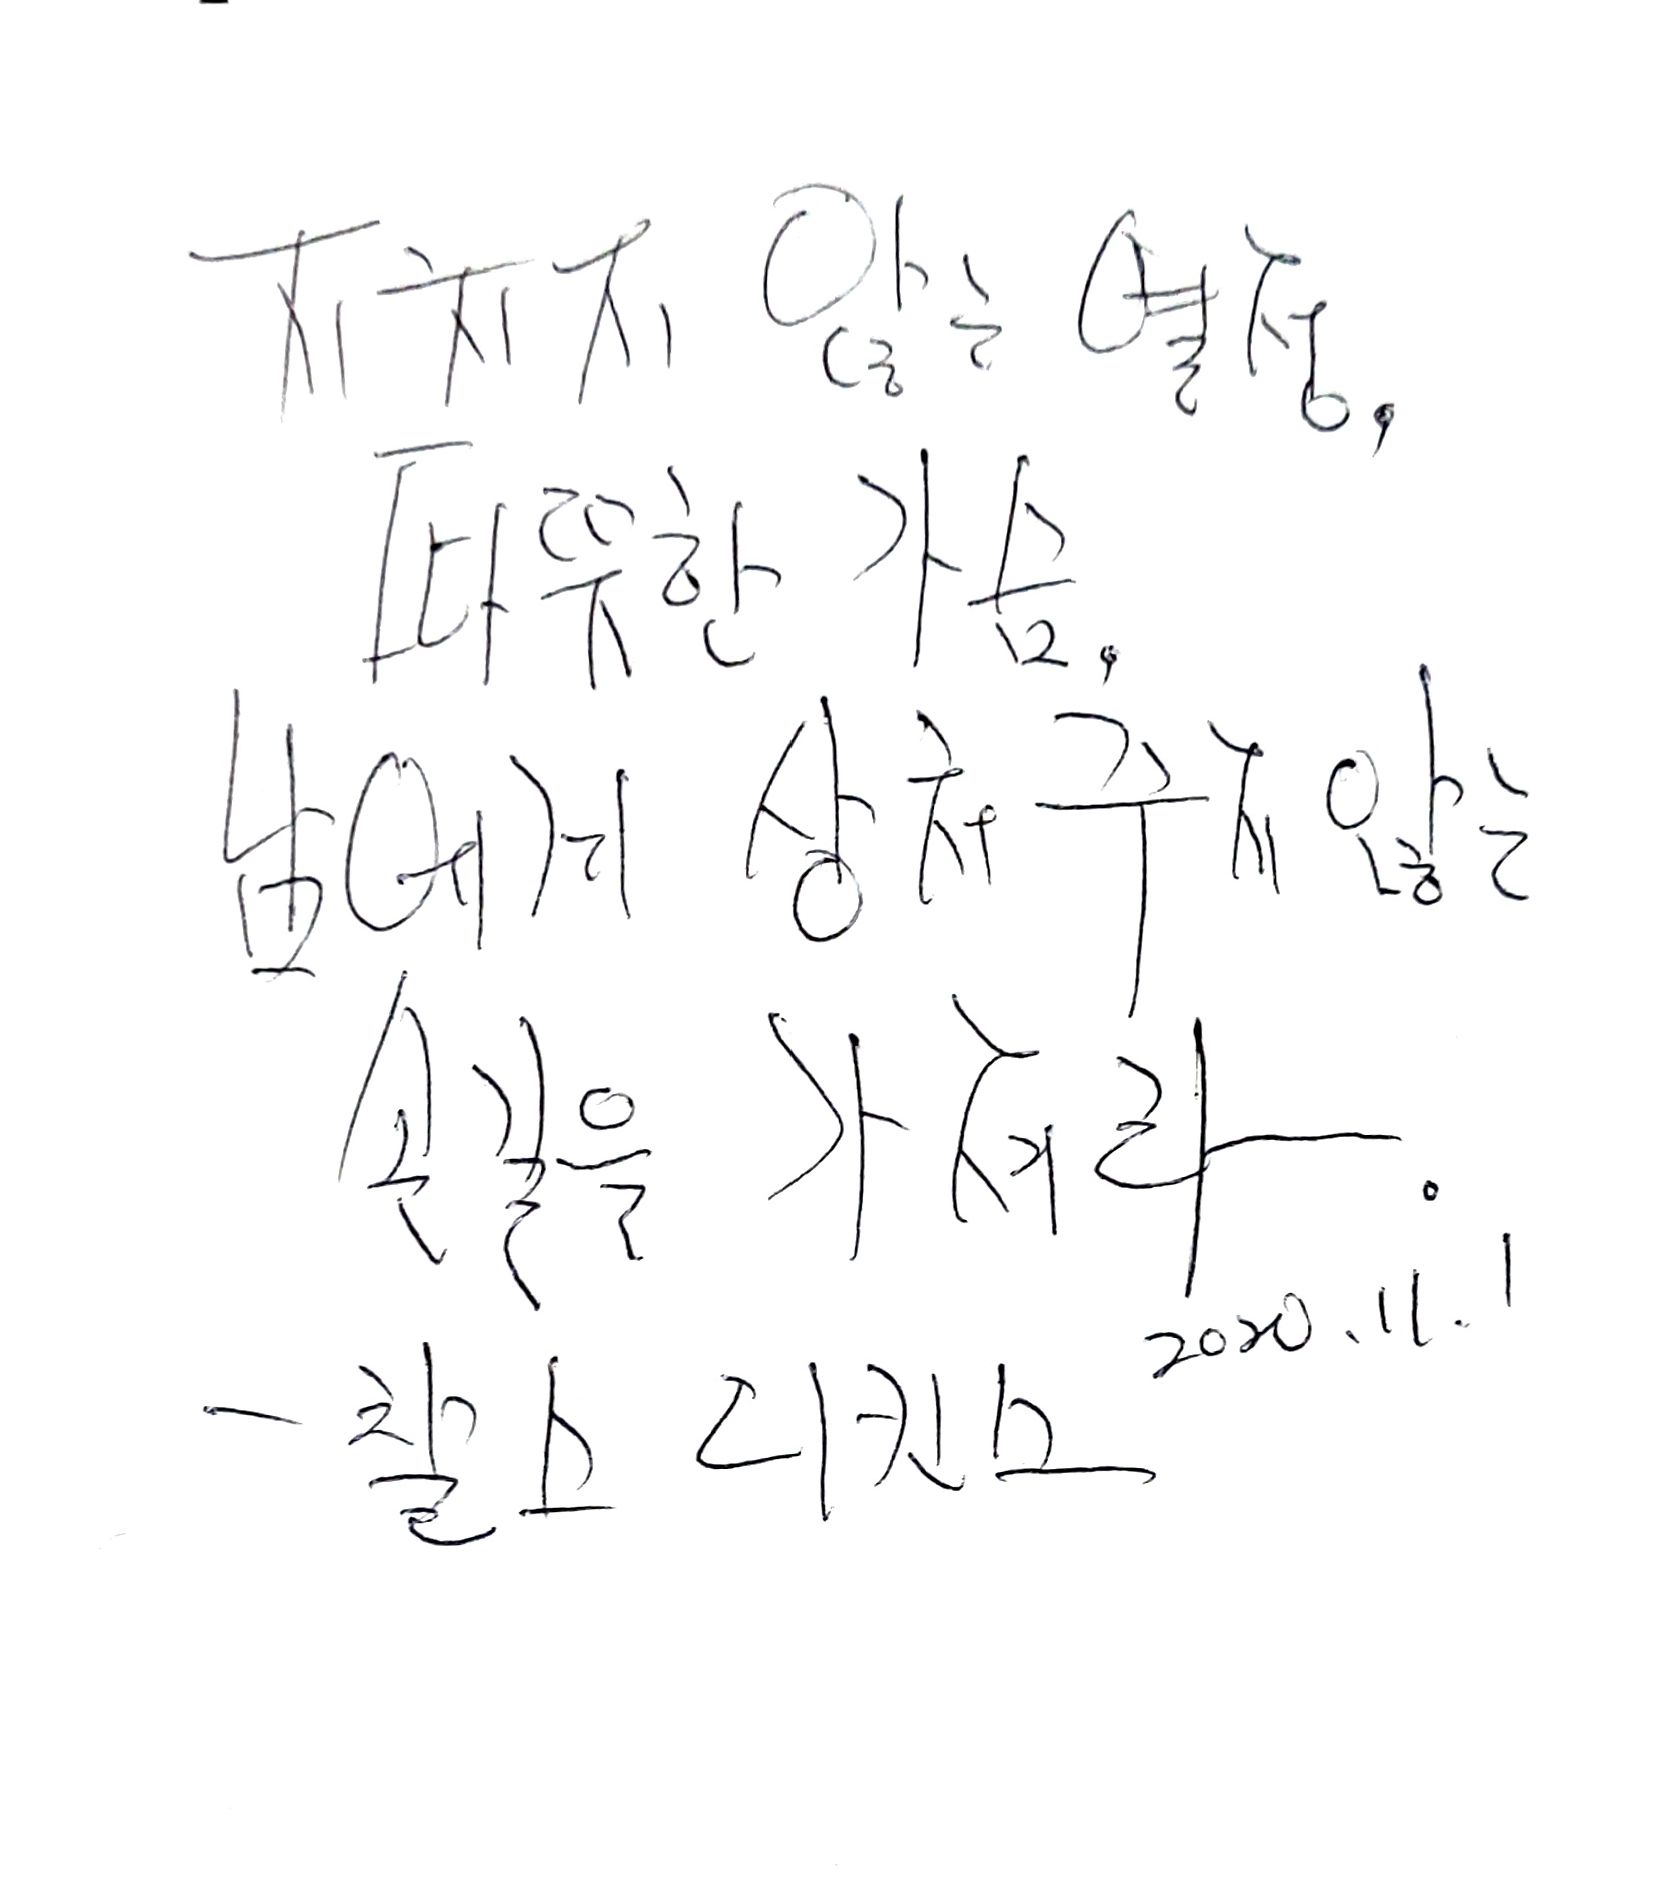 지치지 않는 열정,
따뜻한 가슴,
남에게 상처 주지 않는
손길을 가져라.
2020.11.1
- 찰스 디킨스